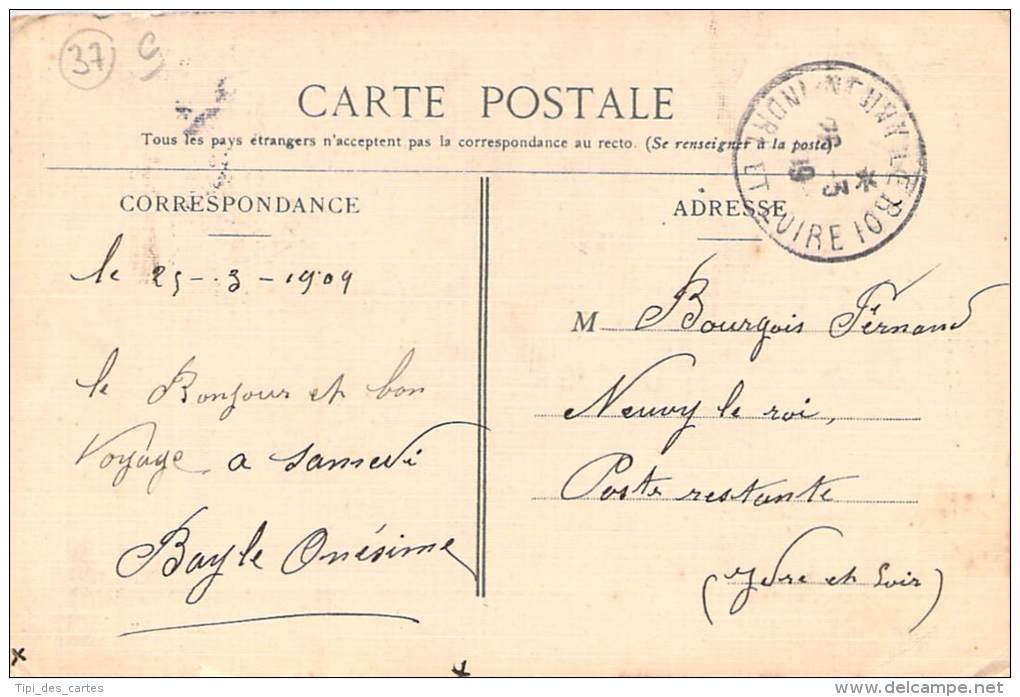 37 C
CARTE POSTALE
Tous les pays étrangers n'acceptent pas la correspondance au recto. (Se renseigner à la poste)
CORRESPONDANCE
le 25-3-1909
le Bonjour et bon
voyage a samedi
Bayle Onésime
ADRESSE
M Bourgois Fernand
Neuvy le roi,
Poste restante
(Ydre et Loir)
NEUVY LE ROI
INDRE ET LOIRE
26 -3
Tipi_des_cartes
www.delcampe.net